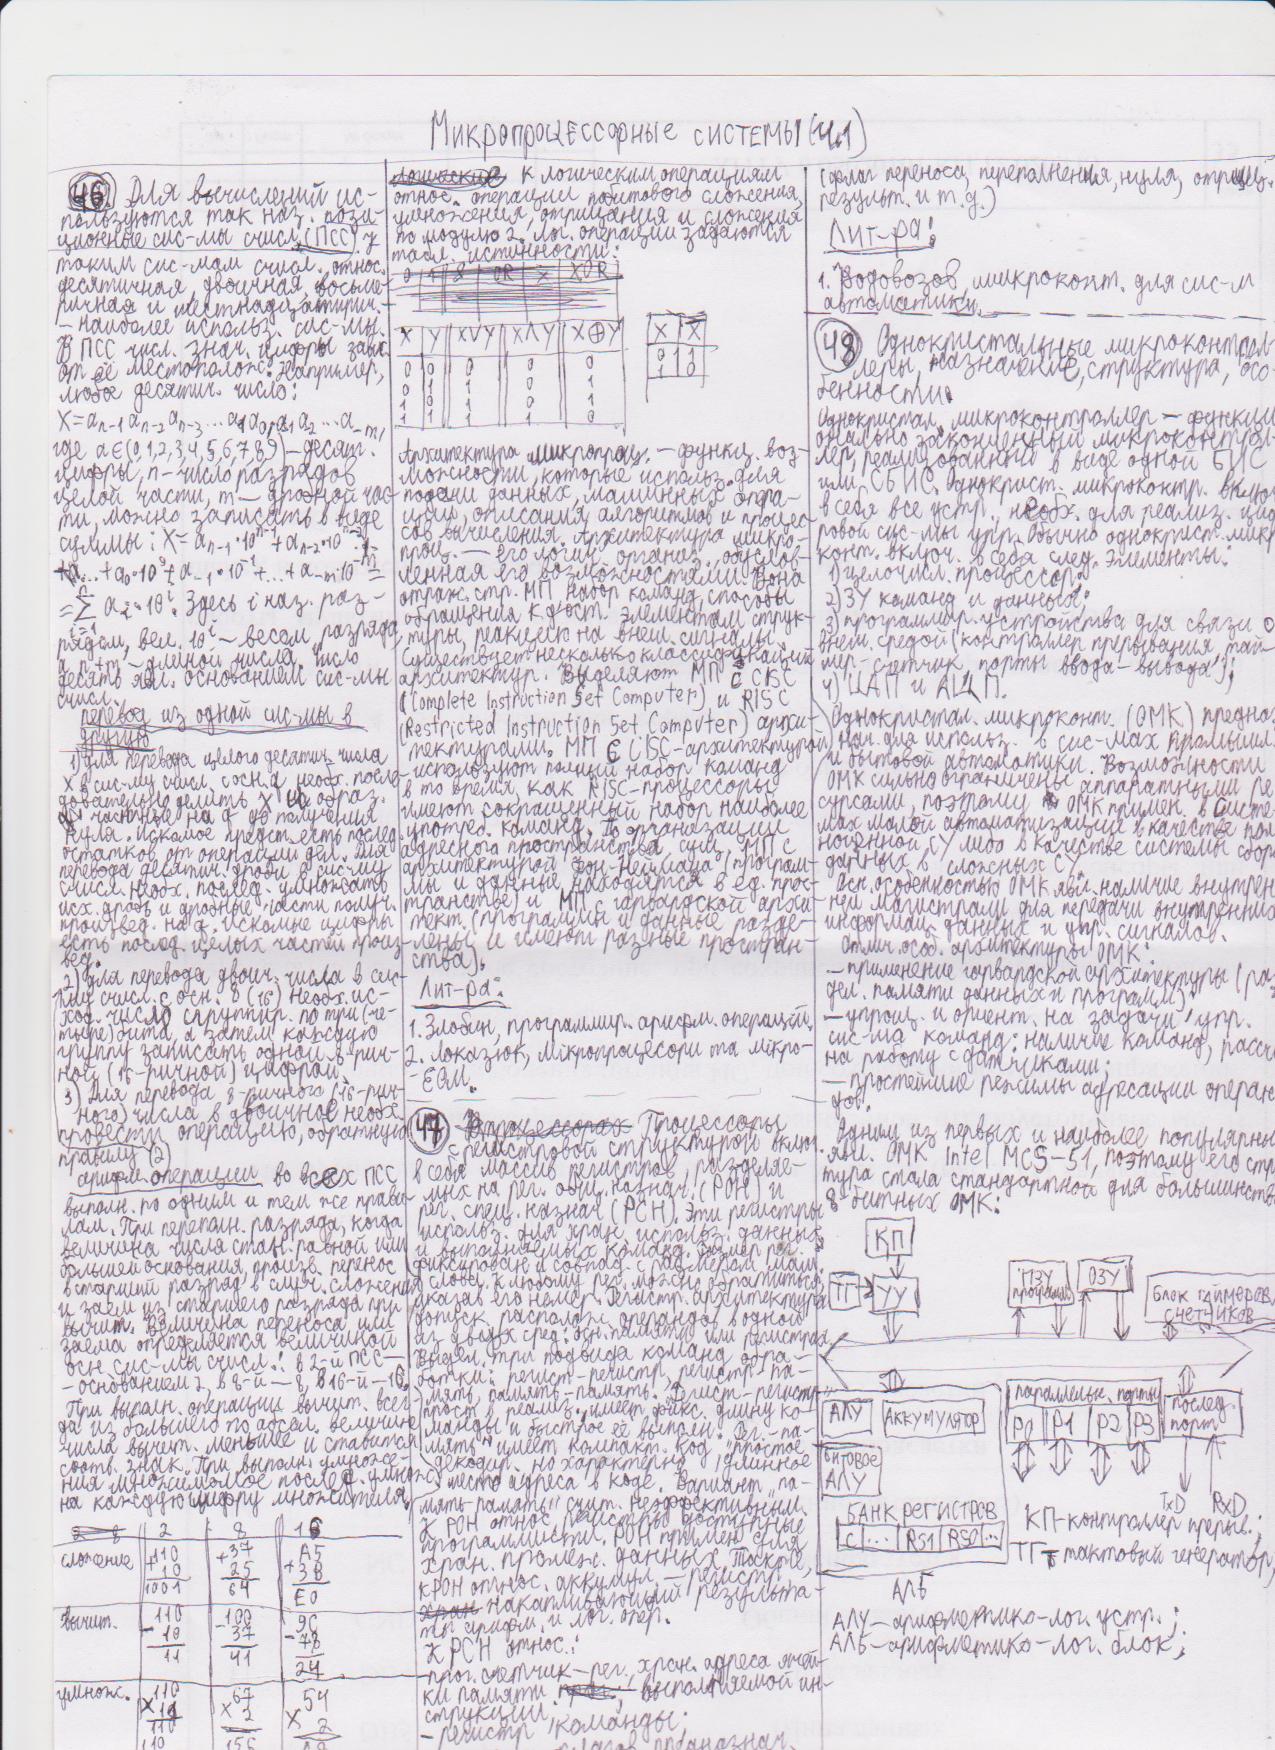 Микропроцессорные системы (ч.1)
46. Для вычислений ис-
пользуются так наз. пози-
ционные сис-мы счисл. (ПСС). К
таким сис-мам счисл. относ.
десятичная, двоичная, восьме-
ричная и шестнадцатирич.
– наиболее использ. сис-мы.
В ПСС числ. знач. цифры завис.
от её местополож. Например,
любое десятич. число:
где a∈(0,1,2,3,4,5,6,7,8,9) – десят.
цифры, n – число разрядов
целой части, m – дробной час-
ти, можно записать в виде
суммы: X = aₙ₋₁·10ⁿ⁻¹ + aₙ₋₂·10ⁿ⁻²
+ ... + a₀·10⁰ + a₋₁·10⁻¹ + ... + a₋ₘ·10⁻ᵐ =
Здесь i наз. раз-
рядом, вел. 10ⁱ – весом разряда,
а n+m – длиной числа. Число
десять явл. основанием сис-мы
счисл.
Перевод из одной сис-мы в
другую
1) Для перевода целого десятич. числа
X в сис-му счисл. с осн. d необх. после-
довательно делить X и образ.
частные на d до получения
нуля. Искомое предст. есть послед.
остатков от операции дел. Для
перевода десятич. дроби в сис-му
счисл. необх. послед. умножать
исх. дробь и дробные части получ.
произвед. на d. Искомые цифры
есть послед. целых частей произ-
вед.
2) Для перевода двоич. числа в сис-
му счисл. с осн. 8 (16) необх. ис-
ход. число сгруппир. по три (че-
тыре) бита, а затем каждую
группу записать одной 8-рич-
ной (16-ричной) цифрой
3) Для перевода 8-ричного (16-рич-
ного) числа в двоичное необх.
провести операцию, обратную
правилу (2)
Арифм. операции во всех ПСС
выполн. по одним и тем же прави-
лам. При переполн. разряда, когда
величина числа стан. равной или
большей основания, произв. перенос
в старший разряд в случ. сложения
и заем из старшего разряда при
вычит. Величина переноса или
заема определяется величиной
осн. сис-мы счисл.: в 2-й ПСС –
– основанием 2, в 8-й – 8, в 16-й – 16.
При выполн. операции вычит. всег-
да из большего по абсол. величине
числа вычит. меньшее и ставится
соотв. знак. При выполн. умноже-
ния множимое послед. умнож.
на каждую цифру множителя.
2 8 16
сложение +110 10 1001 +37 25 64 +A5 3B E0
вычит. -110 10 11 -100 37 41 -9C 78 24
умнож. ×110 11 110 110 ×67 2 156 ×54 2 A8
К логическим операциям
относ. операции побитового сложения,
умножения, отрицания и сложения
по модулю 2. Лог. операции задаются
табл. истинности:
X Y X∨Y X∧Y X⊕Y
0 0 0 0 0
0 1 1 0 1
1 0 1 0 1
1 1 1 1 0
X X̅
0 1
1 0
Архитектура микропроц. – функц. воз-
можности, которые использ. для
подачи данных, машинных опера-
ций, описания алгоритмов и процес-
сов вычисления. Архитектура микро-
проц. – его логич. организ., обуслов-
ленная его возможностями. Она
отраж. стр. МП, набор команд, способы
обращения к дост. элементам струк-
туры, реакцию на внеш. сигналы.
Существует несколько классификаций
архитектур. Выделяют МП с CISC
(Complete Instruction Set Computer) и RISC
(Restricted Instruction Set Computer) архи-
тектурами. МП с CISC-архитектурой
используют полный набор команд
в то время, как RISC-процессоры
имеют сокращенный набор наиболее
употреб. команд. По организации
адресного пространства сущ. МП с
архитектурой фон-Неймана (програм-
мы и данные находятся в ед. прос-
транстве) и МП с гарвардской архи-
тект. (программы и данные разде-
лены и имеют разные простран-
ства).
Лит-ра:
1. Злобин, программир. арифм. операций.
2. Локазюк, мікропроцесори та мікро-
-ЕОМ.
47 Процессоры
с регистровой структурой включ.
в себя массив регистров, разделяе-
мых на рег. общ. назнач. (РОН) и
рег. спец. назнач. (РСН). Эти регистры
использ. для хран. использ. данных
и выполняемых команд. Размер рег.
фиксирован и совпад. с размером маш.
слова. К любому рег. можно обратиться,
указав его номер. Регистр. архитектура
допуск. располож. операндов в одной
из двух сред: осн. память или регистрах.
Выдел. три подвида команд обра-
ботки: регист-регистр, регистр-па-
мять, память-память. „Регист-регистр"
прост в реализ., имеет фикс. длину ко-
манды и быстрое её выполн. „Рег.-па-
мять" имеет компакт. код, простое
декодир., но характерно длинное
место адреса в коде. Вариант „па-
мять-память" счит. неэффективным.
К РОН относ. регистры, доступные
программисту. РОН примен. для
хран. промеж. данных. Также,
к РОН относ. аккумул. – регистр,
накапливающий результа-
ты арифм. и лог. опер.
К РСН относ.:
– прог. счетчик – рег., хран. адреса ячей-
ки памяти, выполняемой ин-
струкции;
– регистр команды;
флагов, предназнач.
(флаг переноса, переполнения, нуля, отрицц.
результ. и т.д.)
Лит-ра:
1. Водовозов, микроконт. для сис-м
автоматики.
48 Однокристальные микроконтрол-
леры, назначение, структура, осо-
бенности.
Однокристал. микроконтроллер – функци-
онально законченный микроконтрол-
лер, реализованный в виде одной БИС
или СБИС. Однокрист. микроконтр. включ.
в себя все устр., необх. для реализ. циф-
ровой сис-мы упр. Обычно однокрист. микро-
конт. включ. в себя след. элементы:
1) целочисл. процессор;
2) ЗУ команд и данных;
3) программир. устройства для связи с
внеш. средой (контроллер прерывания, тай-
мер-счетчик, порты ввода-вывода);
4) ЦАП и АЦП.
Однокристал. микроконт. (ОМК) предназ-
нач. для использ. в сис-мах промышл.
и бытовой автоматики. Возможности
ОМК сильно ограничены аппаратными ре-
сурсами, поэтому ОМК примен. в систе-
мах малой автоматизации в качестве пол-
ноценной СУ либо в качестве системы сбора
данных в сложных СУ.
Осн. особенностью ОМК явл. наличие внутрен-
ней магистрали для передачи внутренних
информац. данных и упр. сигналов.
Отлич. особ. архитектуры ОМК:
– применение гарвардской архитектуры (раз-
дел. памяти данных и программ);
– упрощ. и ориент. на задачи упр.
сис-ма команд: наличие команд, рассч.
на работу с датчиками;
– простейшие режимы адресации операн-
дов.
Одним из первых и наиболее популярных
явл. ОМК Intel MCS-51, поэтому его струк-
тура стала стандартной для большинства
8-битных ОМК:
КП
ТГ УУ
ПЗУ програм.
ОЗУ
Блок таймеров,
счетчиков
АЛУ Аккумулятор
Битовое
АЛУ
Банк регистров
C ... RS1 RS0 ...
АЛБ
Параллельн. порты
P0 P1 P2 P3
послед.
порт
TxD RxD
КП – контроллер прерыв.;
ТГ – тактовый генератор;
АЛУ – арифметико-лог. устр.;
АЛБ – арифметико-лог. блок;